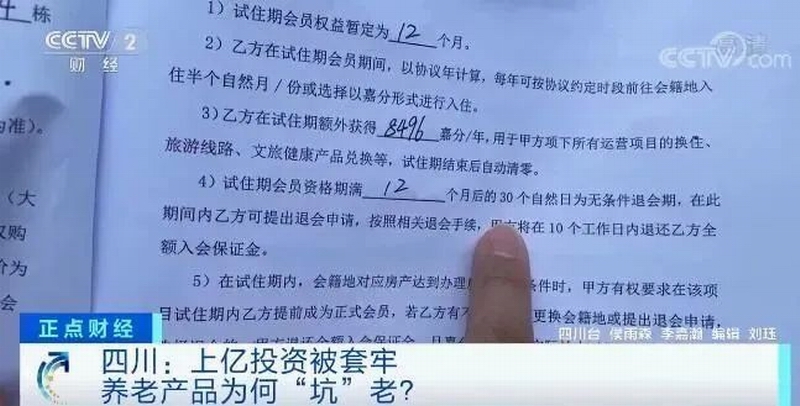 栋
CCTV 2
财 经
CCTV.com
1）试住期会员权益暂定为 12 个月。
2）乙方在试住期会员期间，以协议年计算，每年可按协议约定时段前往会籍地入
住半个自然月/份或选择以嘉分形式进行入住。
为准）。
3）乙方在试住期额外获得 8496 嘉分/年，用于甲方项下所有运营项目的换住、
旅游线路、文旅健康产品兑换等，试住期结束后自动清零。
（大
4）试住期会员资格期满 12 个月后的30个自然日为无条件退会期，在此
期间内乙方可提出退会申请，按照相关退会手续，甲方将在10个工作日内退还乙方全
额入会保证金。
5）在试住期内，会籍地对应房产达到办理 条件时，甲方有权要求在该项
目试住期内乙方提前成为正式会员，若乙方有不 更换会籍地或提出退会申请，
四川台 侯雨霖 李嘉潮 编辑 刘珏
正点财经
四川：上亿投资被套牢
养老产品为何“坑”老？